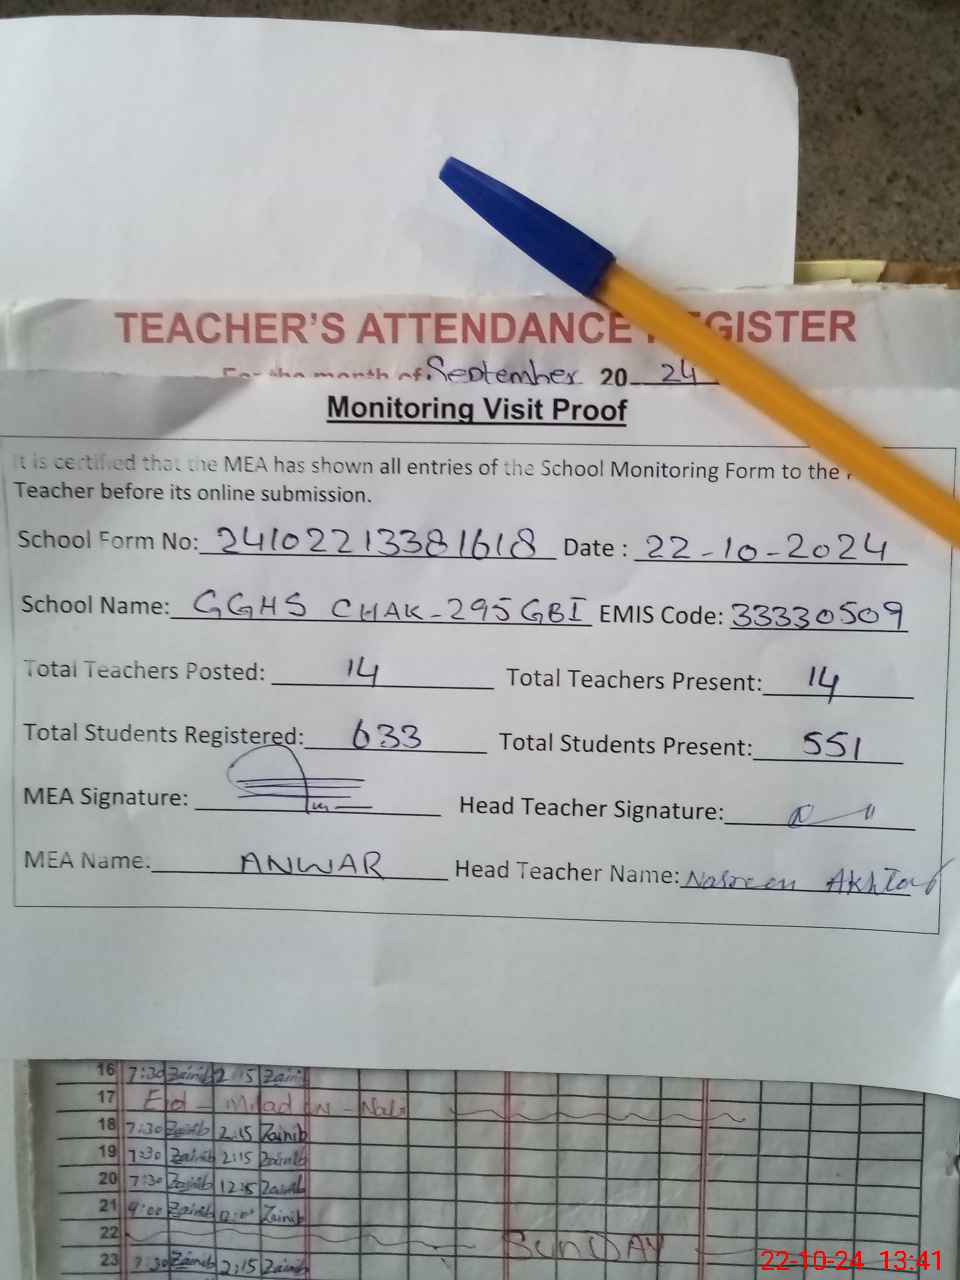 TEACHER'S ATTENDANCE REGISTER
For the month of September 20 24
Monitoring Visit Proof
It is certified that the MEA has shown all entries of the School Monitoring Form to the
Teacher before its online submission.
School Form No: 24102213381618 Date : 22-10-2024
School Name: GGHS CHAK-295GBI EMIS Code: 33330509
Total Teachers Posted: 14 Total Teachers Present: 14
Total Students Registered: 633 Total Students Present: 551
MEA Signature: Head Teacher Signature:
MEA Name: ANWAR Head Teacher Name: Nasreen Akhtar
16 7:30 Zainib 2:15 Zainib
17 Eid - Milad
18 7:30 Zainib 2:15 Zainib
19 7:30 Zainib 2:15 Zainib
20 7:30 Zainib 12:15 Zainib
21 9:00 Zainib Zainib
22 SUNDAY
23 7:30 Zainib 2:15 Zainib
22-10-24 13:41